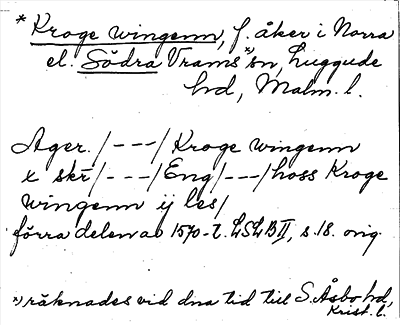 * Kroge wingenn, f. åker i Norra
el. Södra Vrams *) sn, Luggude
hd, Malm. l.
Ager. /---/ Kroge wingenn
x skr /---/ Eng /---/ hoss Kroge
wingenn ij les /
förra delen av 1570-t. LSLB II, s. 18. orig.
*) räknades vid dna tid till S. Åsbo hd,
Krist. l.